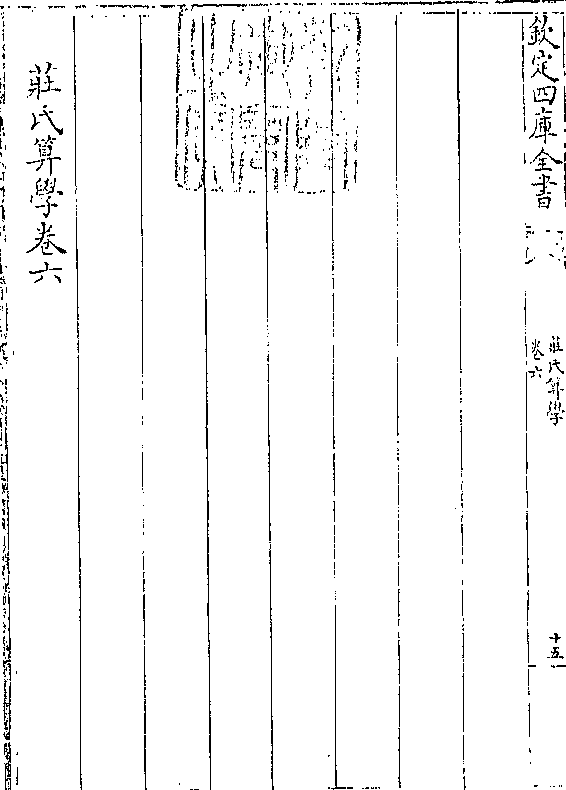 欽定四庫全書
莊氏算學
卷六
十五
莊氏算學卷六